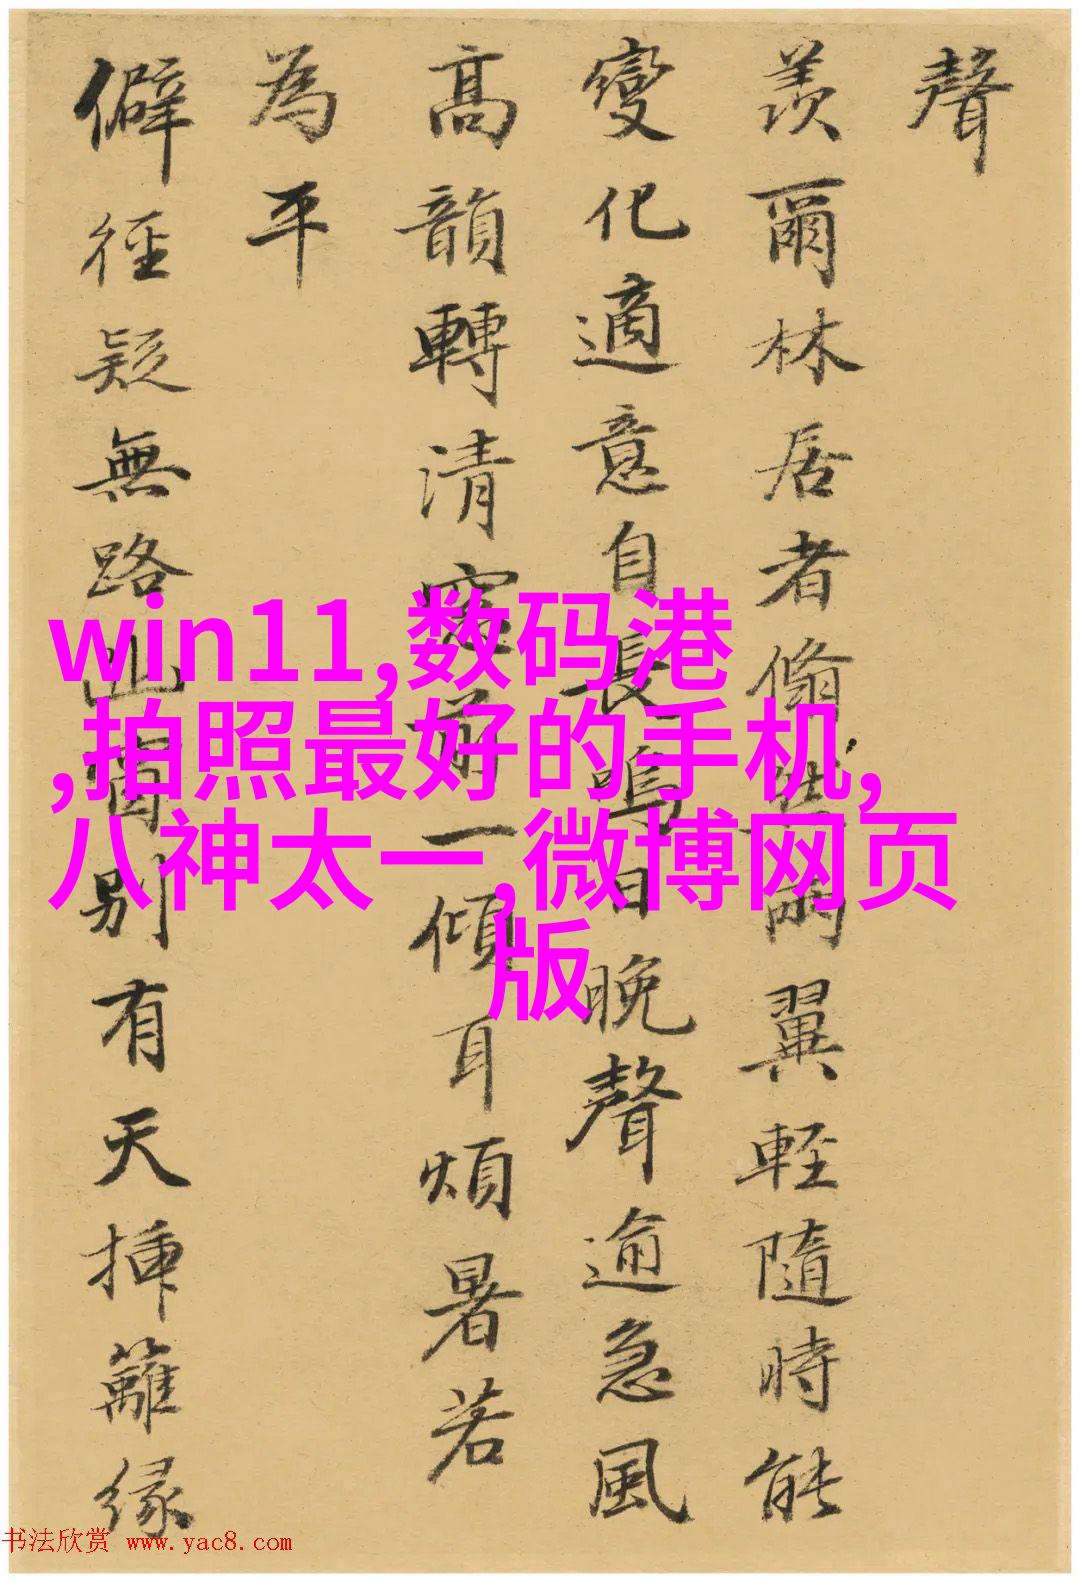 聲
羨爾林居者翛然兩翼輕隨時能
變化適意自長鳴日晚聲逾急風
高韻轉清窗前一傾耳煩暑若
為平
僻徑疑無路此簡別有天插籬緣
win11,数码港
,拍照最好的手机,
八神太一,微博网页
版
书法欣赏 www.yac8.com